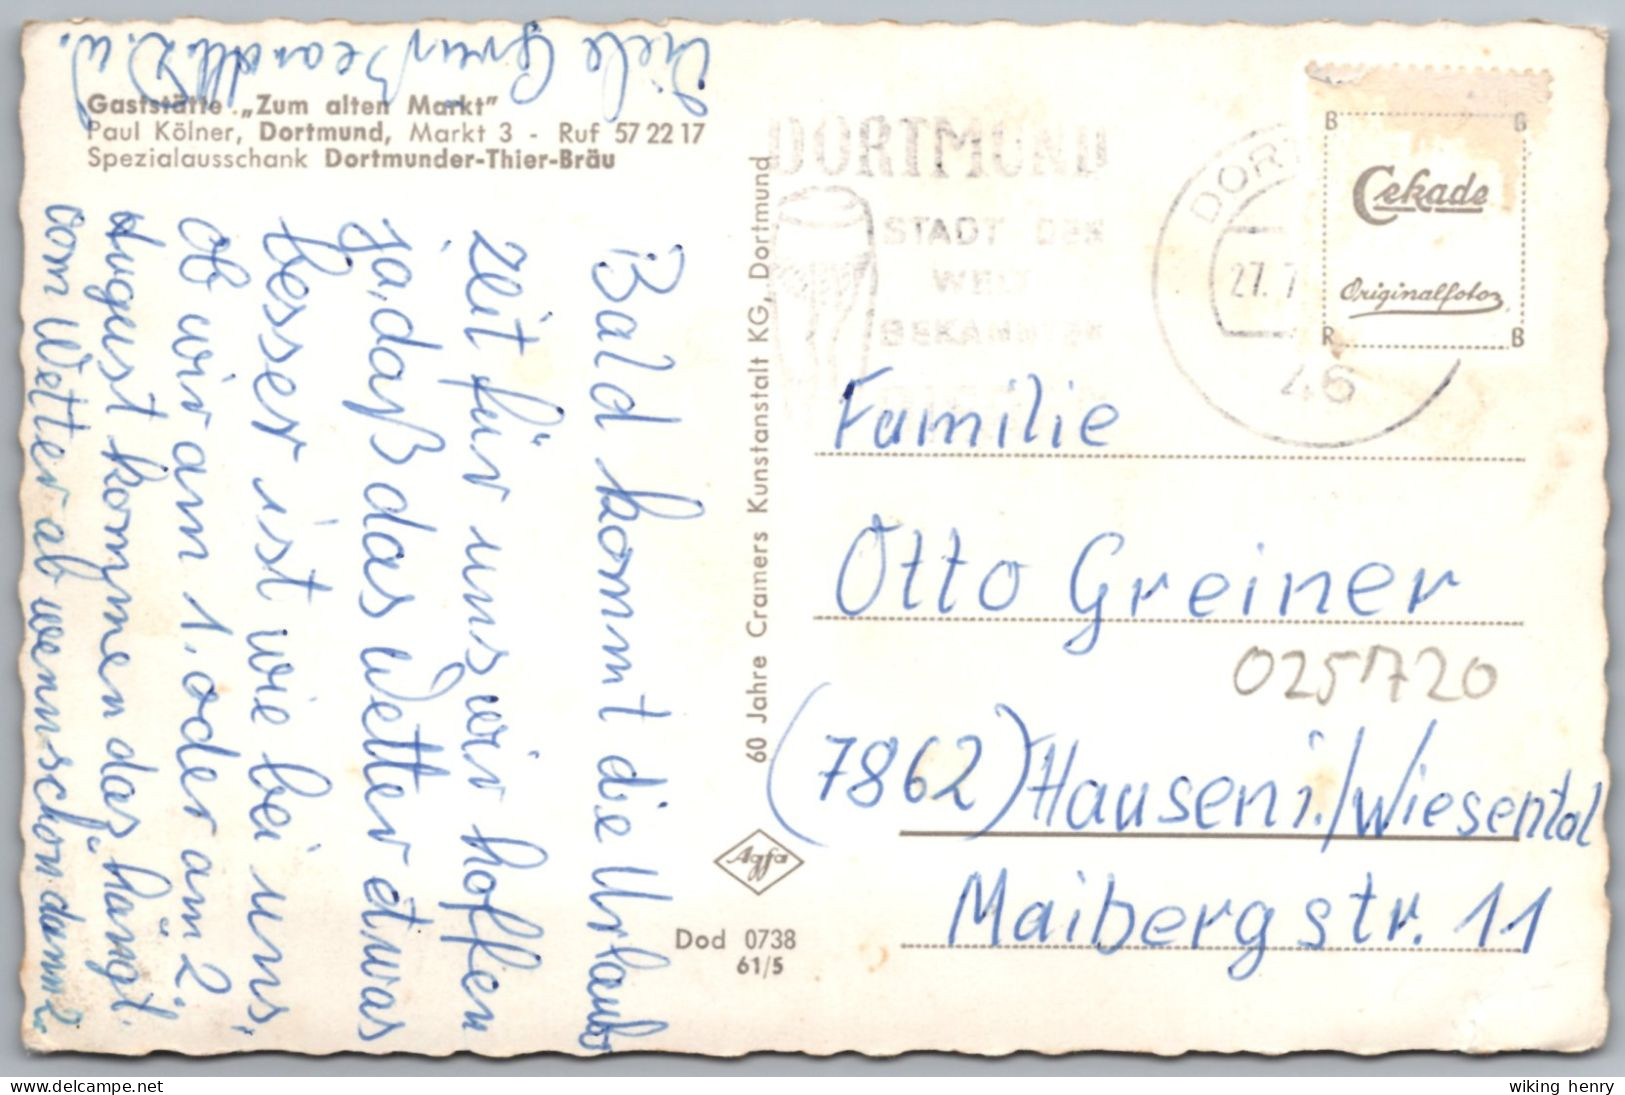 Gaststätte „Zum alten Markt"
Paul Kölner, Dortmund, Markt 3 - Ruf 57 22 17
Spezialausschank Dortmunder-Thier-Bräu
Bald kommt die Urlaubs
zeit für uns wir hoffen
ja, daß das Wetter etwas
besser ist wie bei uns,
ob wir am 1. oder am 2.
August kommen das hängt
vom Wetter ab wenn schon dann 2.
Viele Grüße
60 Jahre Cramers Kunstanstalt KG, Dortmund
Agfa
Dod 0738
61/5
DORTMUND
STADT DER
WELT
BEKANNTEN
BIERE
DORT
27. 7
46
B G
Cekade
Originalfoto
R B
Familie
Otto Greiner
025720
(7862) Hausen i./Wiesental
Maibergstr. 11
wiking henry